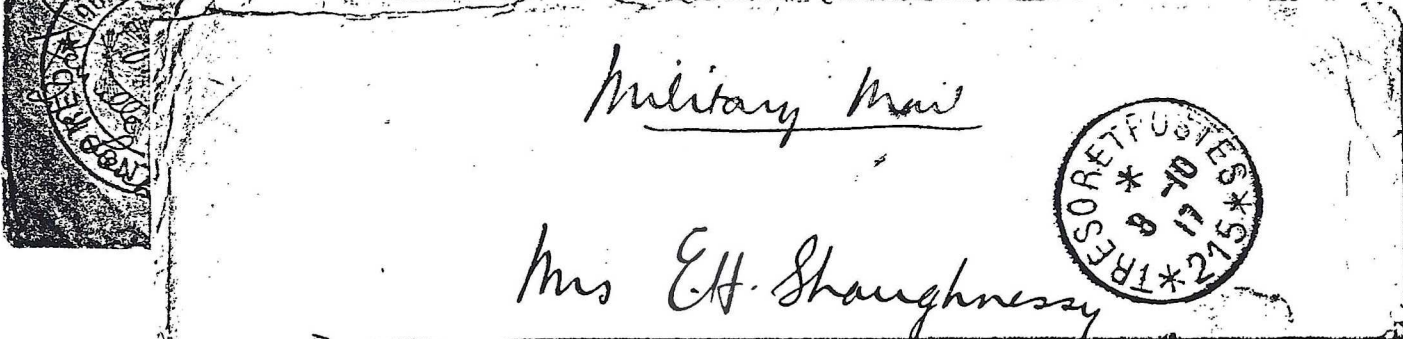 Military Mail
*TRESORETPOSTES*215*
*
8 10
17
Mrs E.H. Shaughnessy